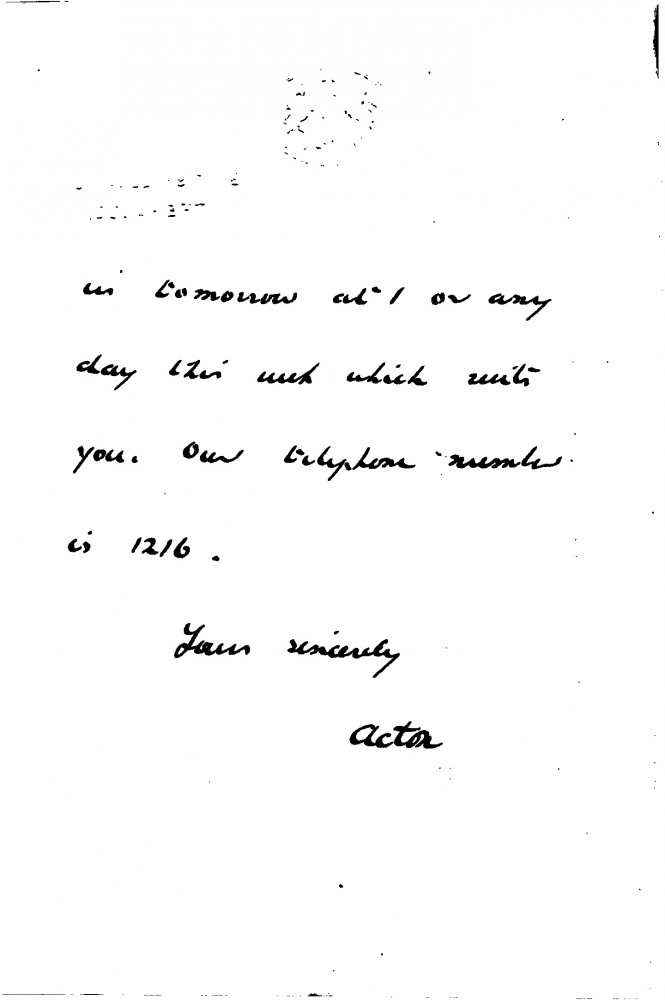 in tomorrow at 1 or any
day this week which suits
you. Our telephone number
is 1216.
Yours sincerely
Acton